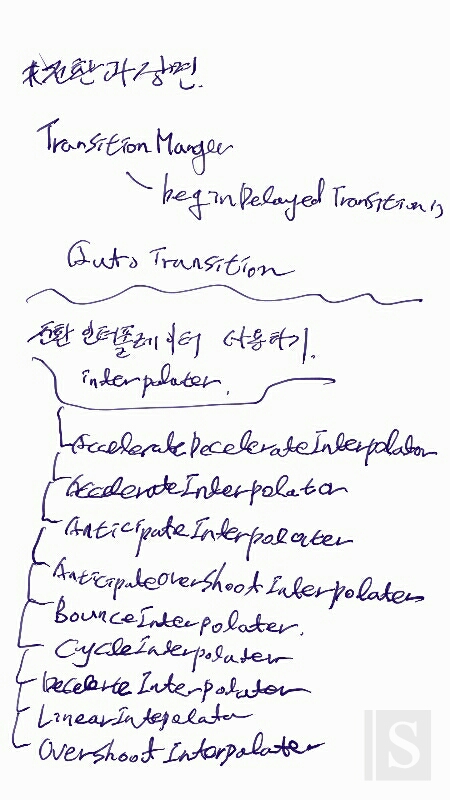 *전환과 장면.
Transition Manger
begin Delayed Transition()
Auto Transition
전환 인터폴레이터 사용하기.
interpolater.
AccelerateDecelerateInterpolator
AccelerateInterpolator
AnticipateInterpolater
AnticipateOvershootInterpolater
BounceInterpolater.
CycleInterpolater
DecelerteInterpolator
LinearIntepolator
OvershootInterpolater
S